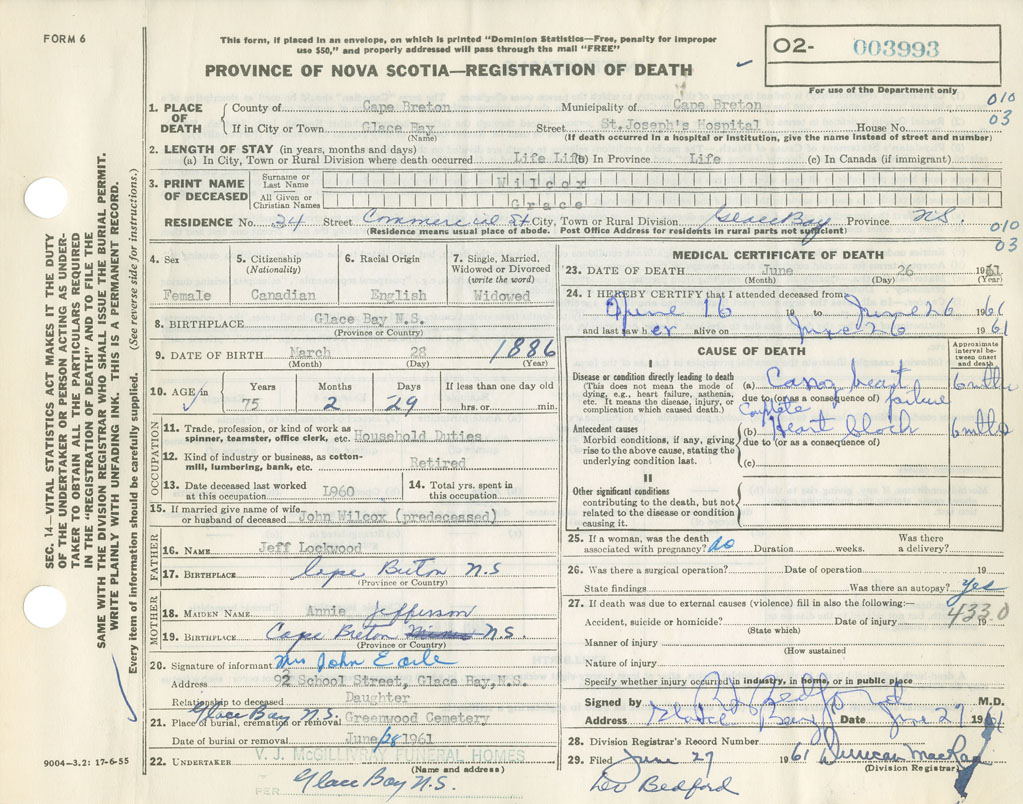 FORM 6
This form, if placed in an envelope, on which is printed "Dominion Statistics—Free, penalty for improper
use $50," and properly addressed will pass through the mail "FREE"
PROVINCE OF NOVA SCOTIA—REGISTRATION OF DEATH
O2- 003993
For use of the Department only
010
03
1. PLACE OF DEATH
County of Cape Breton Municipality of Cape Breton
If in City or Town Glace Bay Street St.Joseph's Hospital House No.
(Name) (If death occurred in a hospital or institution, give the name instead of street and number)
2. LENGTH OF STAY (in years, months and days)
(a) In City, Town or Rural Division where death occurred Life Life (b) In Province Life (c) In Canada (if immigrant)
3. PRINT NAME OF DECEASED
Surname or Last Name Wilcox
All Given or Christian Names Grace
RESIDENCE No. 34 Street Commercial St City, Town or Rural Division Glace Bay Province N.S.
(Residence means usual place of abode. Post Office Address for residents in rural parts not sufficient)
010
03
4. Sex
Female
5. Citizenship
(Nationality)
Canadian
6. Racial Origin
English
7. Single, Married,
Widowed or Divorced
(write the word)
Widowed
8. BIRTHPLACE Glace Bay N.S.
(Province or Country)
9. DATE OF BIRTH March 28 1886
(Month) (Day) (Year)
10. AGE
Years Months Days If less than one day old
75 2 29 hrs. or min.
OCCUPATION
11. Trade, profession, or kind of work as
spinner, teamster, office clerk, etc. Household Duties
12. Kind of industry or business, as cotton-
mill, lumbering, bank, etc. Retired
13. Date deceased last worked
at this occupation 1960
14. Total yrs. spent in
this occupation
15. If married give name of wife
or husband of deceased John Wilcox (predeceased)
FATHER
16. NAME Jeff Lockwood
17. BIRTHPLACE Cape Breton N.S
(Province or Country)
MOTHER
18. MAIDEN NAME Annie Jefferson
19. BIRTHPLACE Cape Breton N.S.
(Province or Country)
20. Signature of informant Mrs John Earle
Address 92 School Street, Glace Bay,N.S.
Relationship to deceased Daughter
Glace Bay N.S.
21. Place of burial, cremation or removal Greenwood Cemetery
Date of burial or removal June/28 1961
22. UNDERTAKER V. J. McGILLIVRAY FUNERAL HOMES
(Name and address)
PER Glace Bay N.S.
9004—3.2: 17-6-55
MEDICAL CERTIFICATE OF DEATH
23. DATE OF DEATH June 26 1961
(Month) (Day) (Year)
24. I HEREBY CERTIFY that I attended deceased from
June 16 19 to June 26 1961
and last saw her alive on June 26 1961
CAUSE OF DEATH
Approximate
interval be-
tween onset
and death
I
Disease or condition directly leading to death
(This does not mean the mode of
dying, e.g., heart failure, asthenia,
etc. It means the disease, injury, or
complication which caused death.)
(a) heart failure 6 mths
due to (or as a consequence of)
Antecedent causes
Morbid conditions, if any, giving
rise to the above cause, stating the
underlying condition last.
Complete
(b) Heart block 6 mths
due to (or as a consequence of)
(c)
II
Other significant conditions
contributing to the death, but not
related to the disease or condition
causing it.
25. If a woman, was the death
associated with pregnancy? No Duration weeks.
Was there
a delivery?
26. Was there a surgical operation? Date of operation 19
State findings Was there an autopsy? Yes
27. If death was due to external causes (violence) fill in also the following:—
433.0
Accident, suicide or homicide? Date of injury 19
(State which)
Manner of injury
(How sustained
Nature of injury
Specify whether injury occurred in industry, in home, or in public place
Signed by Bedford M.D.
Address Glace Bay Date June 27 1961
28. Division Registrar's Record Number
29. Filed June 27 1961 Duncan MacKay
(Division Registrar)
Dr Bedford
SEC. 14—VITAL STATISTICS ACT MAKES IT THE DUTY
OF THE UNDERTAKER OR PERSON ACTING AS UNDER-
TAKER TO OBTAIN ALL THE PARTICULARS REQUIRED
IN THE "REGISTRATION OF DEATH" AND TO FILE THE
SAME WITH THE DIVISION REGISTRAR WHO SHALL ISSUE THE BURIAL PERMIT.
WRITE PLAINLY WITH UNFADING INK. THIS IS A PERMANENT RECORD.
Every item of information should be carefully supplied. (See reverse side for instructions.)